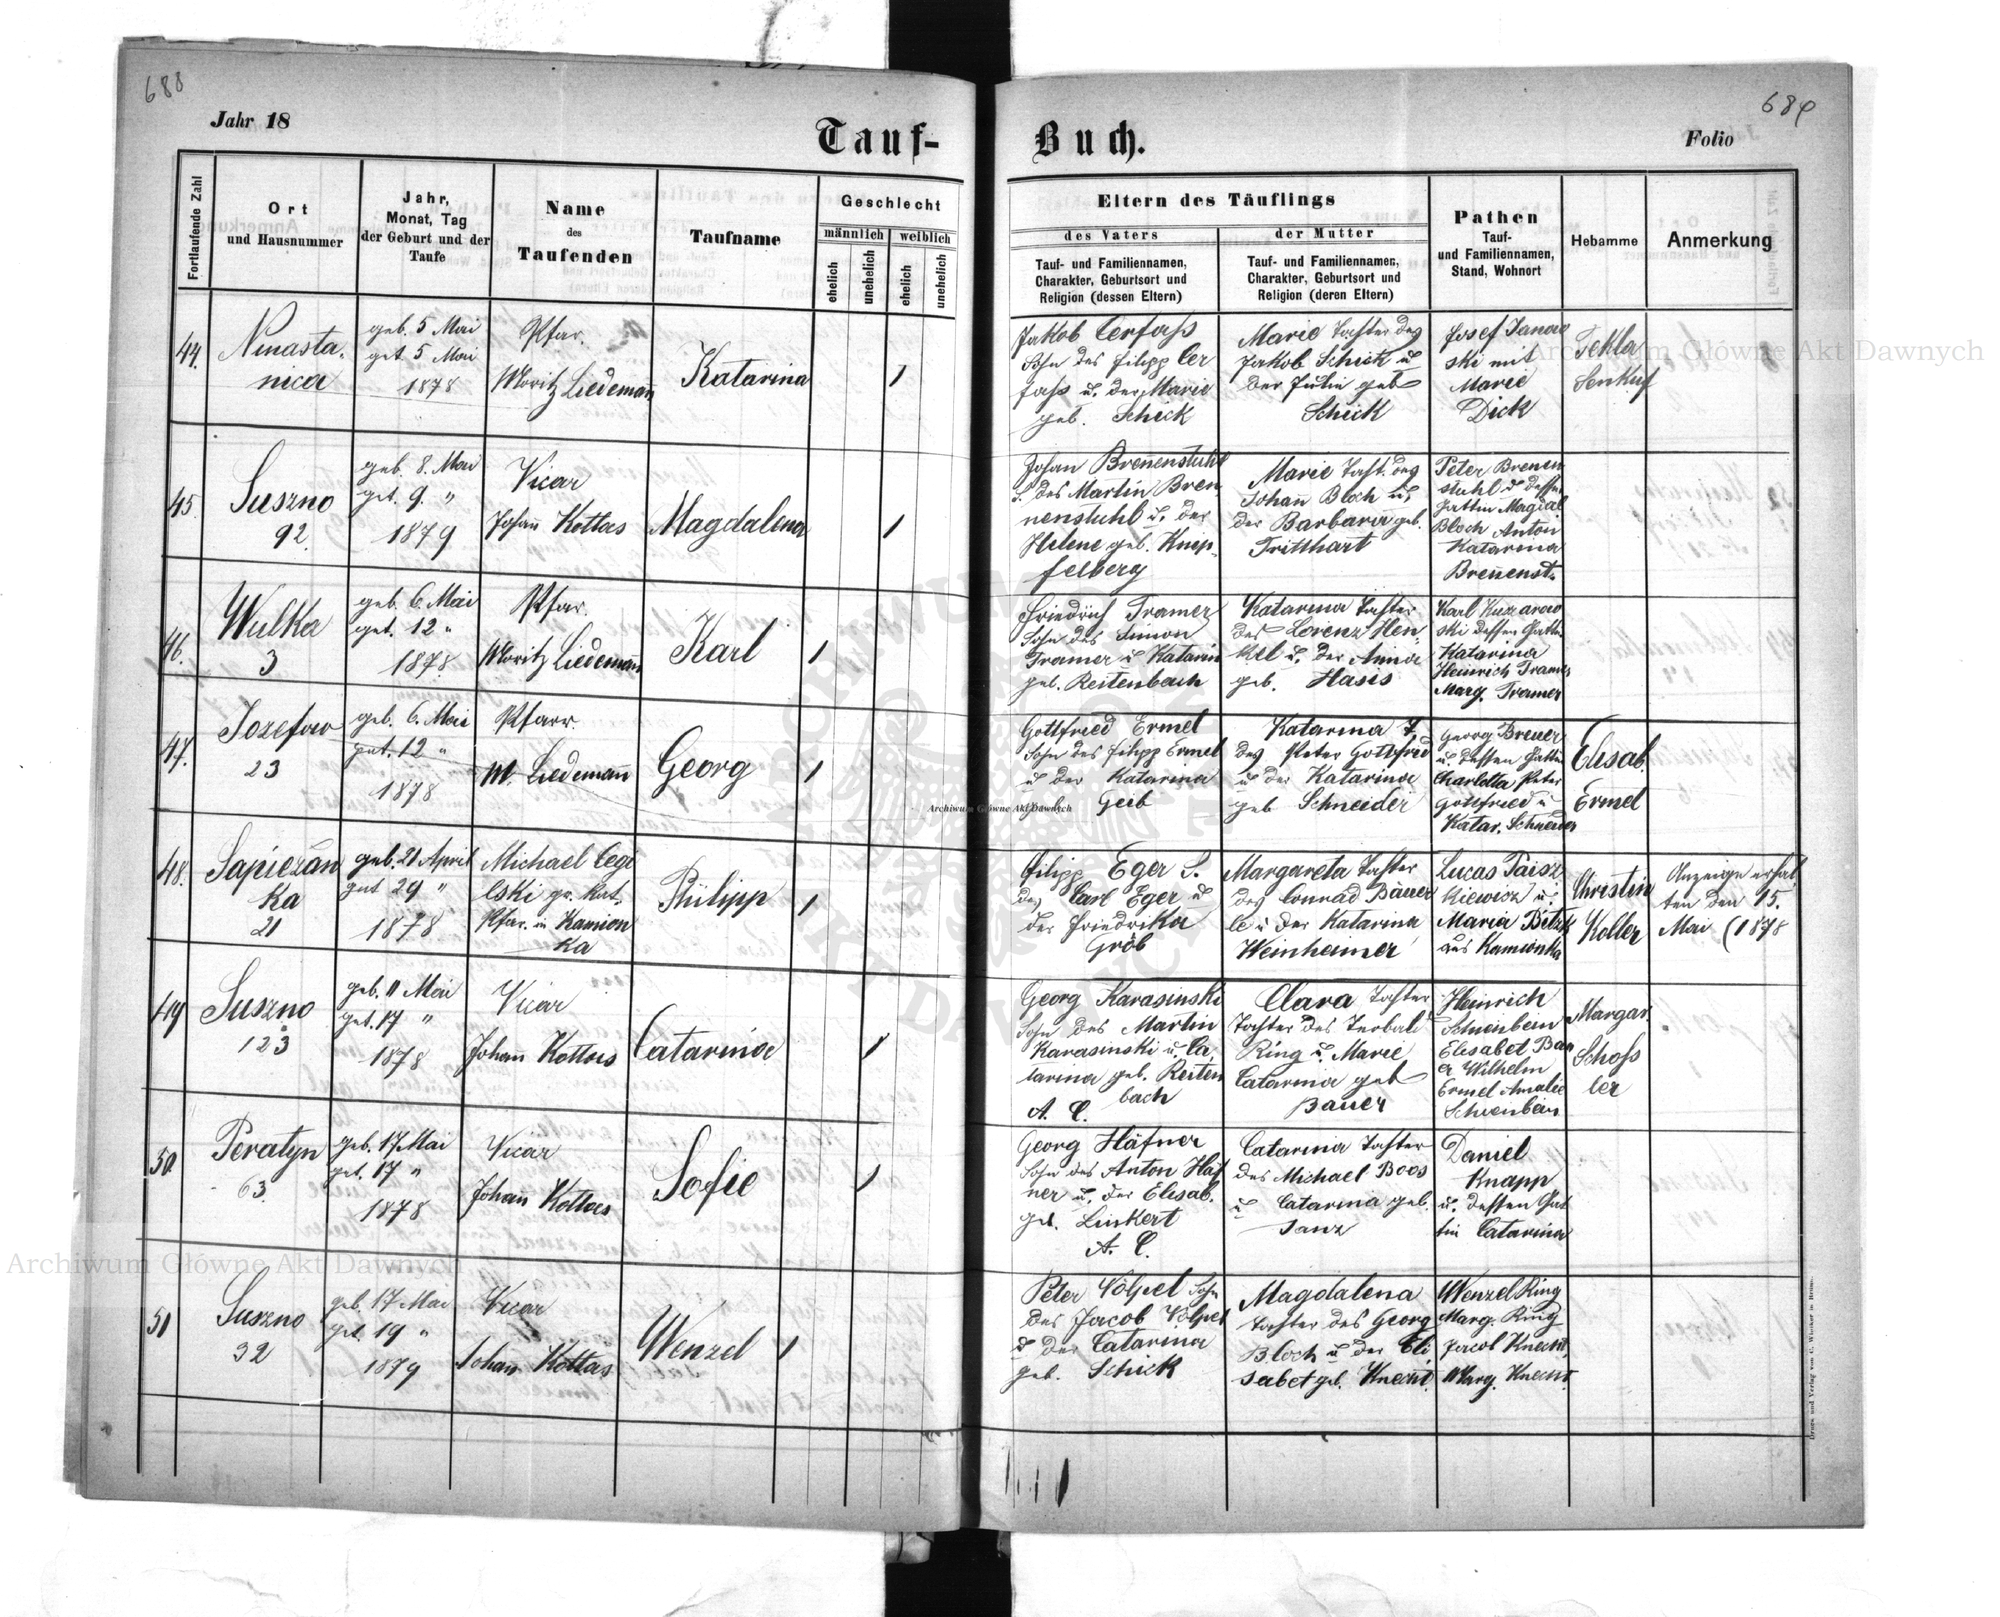 688
Jahr 18
Tauf-
Fortlaufende Zahl
Ort
und Hausnummer
Jahr,
Monat, Tag
der Geburt und der
Taufe
Name
des
Taufenden
Taufname
Geschlecht
männlich
weiblich
ehelich
unehelich
ehelich
unehelich
44.
Ninasta.
nica
geb. 5 Mai
get 5 Mai
1878
Pfar.
Moritz Liedemañ
Katarina
1
45.
Suszno
92.
geb. 8. Mai
get. 9. "
1879
Vicar
Johañ Kottas
Magdalena
1
46.
Wulka
3
geb. 6. Mai
get. 12 "
1878
Pfar.
Moritz Liedemañ
Karl
1
47.
Jozefow
23
geb. 6. Mai
get. 12 "
1878
Pfarr
M. Liedemañ
Georg
1
48.
Sapiezan
ka
21
geb. 21 April
get 29 "
1878
Michael Cegi
elski gr. kat.
Pfar. in Kamion
ka
Philipp
1
49
Suszno
123
geb. 11 Mai
get. 17 "
1878
Vicar
Johañ Kottas
Catarina
1
50.
Peratyn
63.
geb. 17 Mai
get. 17 "
1878
Vicar
Johañ Kottas
Sofie
1
51
Suszno
32
geb. 17 Mai
get. 19 "
1879
Vicar
Johañ Kottas
Wenzel
1
689
Buch.
Folio
Eltern des Täuflings
des Vaters
der Mutter
Tauf- und Familiennamen,
Charakter, Geburtsort und
Religion (dessen Eltern)
Tauf- und Familiennamen,
Charakter, Geburtsort und
Religion (deren Eltern)
Pathen
Tauf-
und Familiennamen,
Stand, Wohnort
Hebamme
Anmerkung
Jakob Cerfass
Sohn des Filipp Cer
fass u. der Marie
geb. Schick
Marie Tochter des
Jakob Schick u
der Jutin geb
Schick
Josef Janow
ski mit
Marie
Dick
Tekla
Senkuf
Johan Breñenstuhl
S. des Martin Bren
nenstuhl u. der
Helene geb. Knep-
felberg
Marie Tocht. des
Johañ Bloch u.
der Barbara geb.
Tritthart
Peter Brenen
stuhl u dessen
Gattin Magdal
Bloch Anton
Katarina
Breñenst.
Friedrich Tramer
Sohn des Simon
Tramer u Katarin
geb. Reitenbach
Katarina Tochter
des Lorenz Hen
kel u. der Anna
geb. Hasis
Karl Kuzarow
ski dessen Gattin
Katarina
Heinrich Tramer
Marg. Tramer
Gottfried Ermel
Sohn des Filipp Ermel
u der Katarina
Geib
Katarina T.
des Peter Gottfried
u der Katarina
geb Schneider
Georg Breuer
u. dessen Gattin
Charlotta Peter
Gottfried u
Katar. Schneider
Elisab.
Ermel
Filipp Eger S.
des Carl Eger u
der Friedrika
Gröb
Margareta Tochter
des Conrad Bäuer
le u der Katarina
Weinheimer
Lucas Paisz
kiewicz u.
Maria Betzk
aus Kamionka
Christin
Koller
Anzeige erhal
ten den 15.
Mai (1878
Georg Karasinski
Sohn des Martin
Karasinski u. Ca
tarina geb. Reiten
bach
A. C.
Clara Tochter
Tochter des Terbald
Ring u. Marie
Catarina geb
Bauer
Heinrich
Schienbein
Elisabet Bau
er Wilhelm
Ermel Amalie
Schienbein
Margar.
Schoss
ler
Georg Häfner
Sohn des Anton Häf
ner u. der Elisab.
geb. Linkert
A. C.
Catarina Tochter
des Michael Boos
u Catarina geb.
Janz
Daniel
Knapp
u. dessen Gat
tin Catarina
Peter Völpel Sohn
des Jacob Völpel
u der Catarina
geb. Schick
Magdalena
Tochter des Georg
Bloch u der Eli
sabet geb. Knecht
Wenzel Ring
Marg. Ring
Jacob Knecht
Marg. Knecht
Archiwum Główne Akt Dawnych
Archiwum Główne Akt Dawnych
Archiwum Główne Akt Dawnych